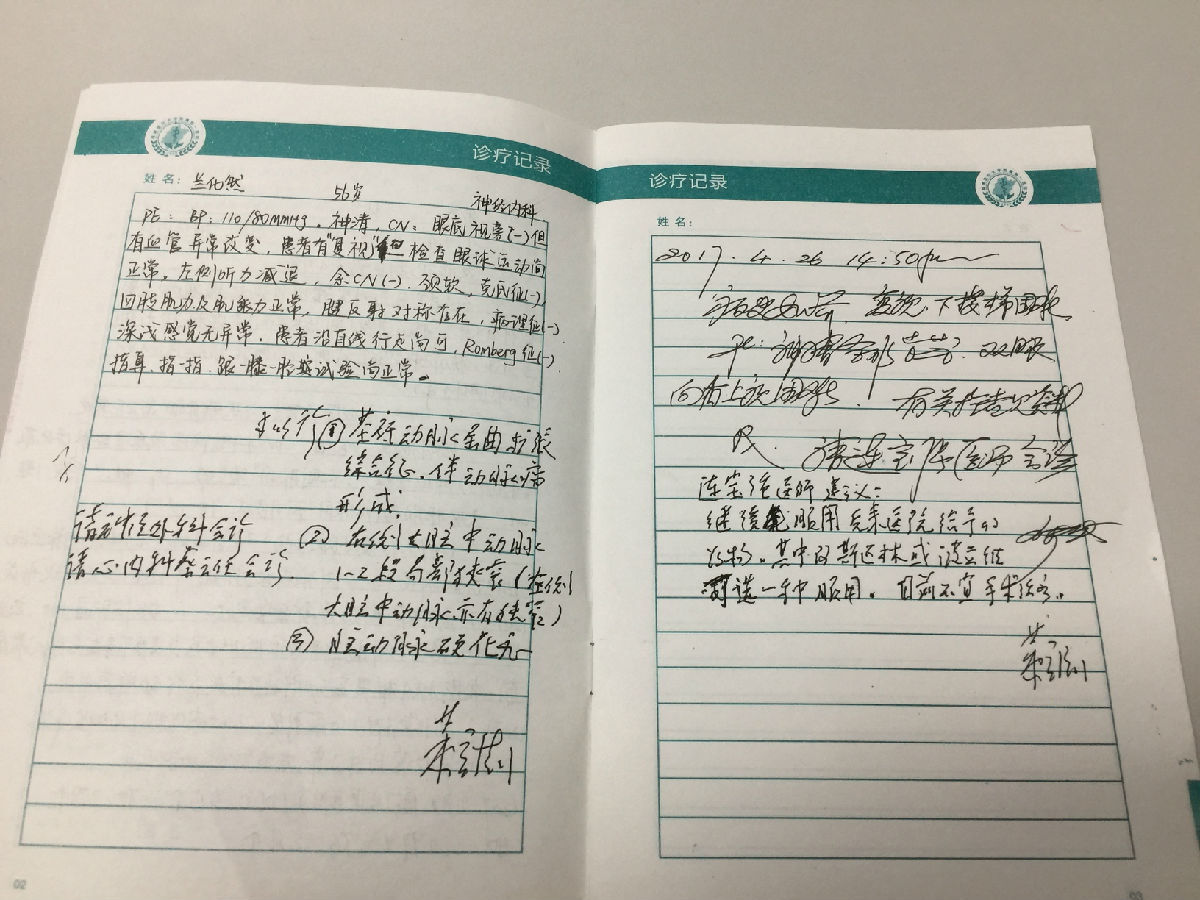 诊疗记录
姓名: 兰化然 56岁 神经内科
PE: BP: 110/80mmHg. 神清, CN: 眼底视意(-)但
有血管异常改变, 患者有"复视" 但检查眼球运动尚
正常, 左侧听力减退, 余CN(-). 颈软, 克氏征(-).
四肢肌力及肌张力正常, 腱反射对称存在, 病理征(-).
深浅感觉无异常, 患者沿直线行走尚可, Romberg征(-)
指鼻、指-指、跟-膝-胫试验尚正常。
① 基底动脉屈曲扩张
综合征, 伴动脉瘤
形成.
请神经外科会诊
② 右侧大脑中动脉
请心内科蔡主任会诊
1-2段局部狭窄(左侧
大脑中动脉亦有狭窄)
③ 脑动脉硬化症
02
诊疗记录
姓名:
2017.4.26 14:50pm
病史如前 复视, 下楼梯困难
PE: 神清 双眼
向右上视困难. 有关检查资料
R. 请连宝强医师会诊
连宝强医师建议:
继续服用 医院给予的
药物. 其中阿斯匹林或波立维
可选一种服用. 目前不宜手术治疗.
03